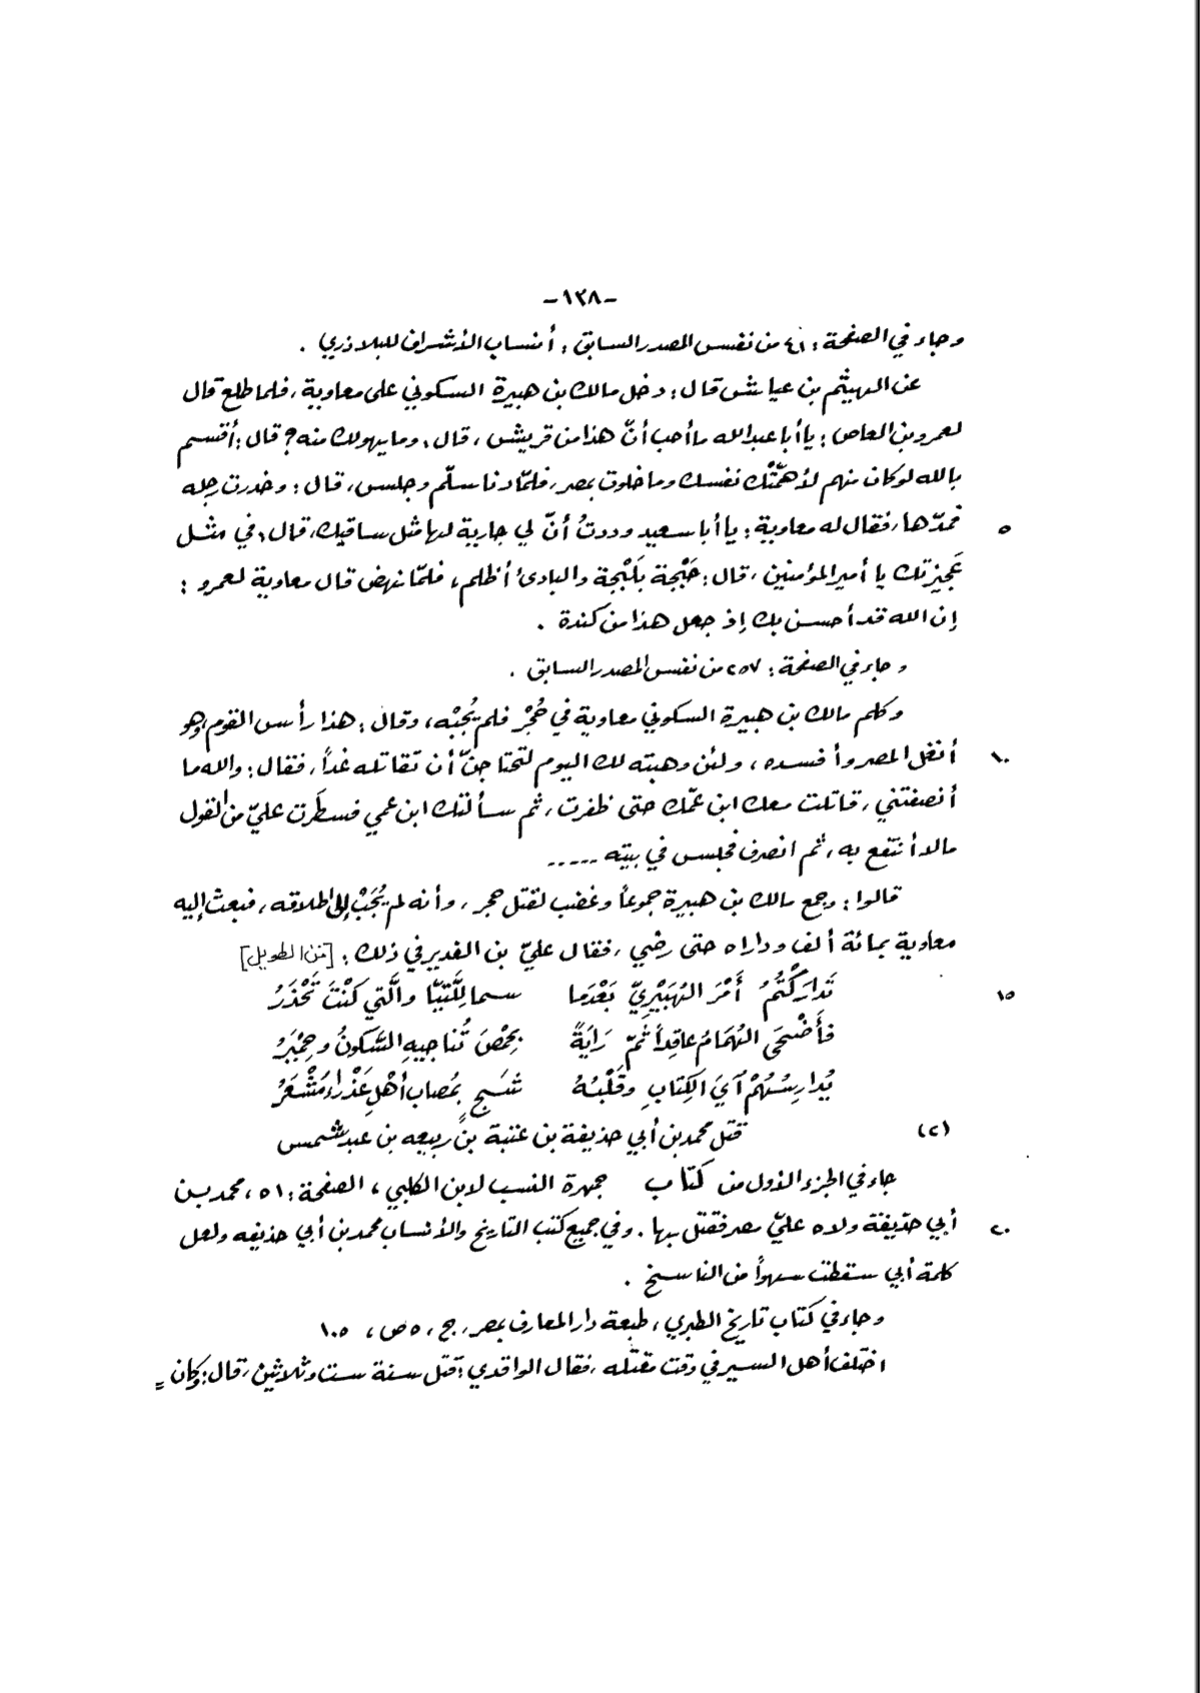 -١٢٨-
وجاء في الصفحة: ٤١ من نفس المصدر السابق: أنساب الأشراف للبلاذري .
عن الهيثم بن عياش قال: دخل مالك بن هبيرة السكوني على معاوية، فلما طلع قال
لعمرو بن العاص: يا أبا عبد الله ما أحب أنّ هذا من قريش، قال: وما يهولك منه؟ قال: أقسم
بالله لو كان منهم لأهمّتْك نفسك وما خلوت بمصر، فلمّا دنا سلّم وجلس، قال: وخدرت رجله
٥ فمدّها، فقال له معاوية: يا أبا سعيد وددتُ أنّ لي جارية لها مثل ساقيك، قال: في مثل
عَجيزتك يا أمير المؤمنين، قال: حَبْجة بلَبْجة والبادئ أظلم، فلمّا نهض قال معاوية لعمرو:
إن الله قد أحسن بك إذ جعل هذا من كندة .
وجاء في الصفحة: ٢٥٧ من نفس المصدر السابق .
وكلم مالك بن هبيرة السكوني معاوية في حُجْر فلم يُجبْه، وقال: هذا رأس القوم وهو
١٠ أنغل المصر وأفسده، ولئن وهبته لك اليوم لتحتاجنّ أن تقاتله غداً، فقال: والله ما
أنصفتني، قاتلت معك ابن عمّك حتى ظفرت، ثم سألتك ابن عمي فسطرت عليّ من القول
مالا أنتفع به، ثم انصرف فجلس في بيته -----
قالوا: وجمع مالك بن هبيرة جموعاً وغضب لقتل حجر، وأنه لم يُجَبْ إلى إطلاقه، فبعث إليه
معاوية بمائة ألف وداراه حتى رضي، فقال عليّ بن الغدير في ذلك: [من الطويل]
١٥ تَدارَكْتُمُ أَمْرَ الهُبَيْرِيِّ بَعْدَما سما لِلَّتَيّا والَّتي كنْتَ تَحْذَرُ
فأَضْحَى الهُمَامُ عاقِداً ثمّ رَايَةً بِحِمْصَ تُناجيهِ السَّكونُ وحِمْيَرُ
يُدارِسُهُمْ آيَ الكِتابِ وقَلْبُهُ شَجٍ بمُصاب أهْلِ عَذْراءَ مُشْعَرُ
(٢) قتل محمد بن أبي حذيفة بن عتبة بن ربيعه بن عبد شمس
جاء في الجزء الأول من كتاب جمهرة النسب لابن الكلبي، الصفحة: ٥١، محمد بن
٢٠ أبي حذيفة ولاه عليّ مصر فقتل بها . وفي جميع كتب التاريخ والأنساب محمد بن أبي حذيفه ولعل
كلمة أبي سقطت سهواً من الناسخ .
وجاء في كتاب تاريخ الطبري، طبعة دار المعارف بمصر، ج، ٥ ص، ١٠٥
اختلف أهل السير في وقت مقتله، فقال الواقدي: قتل سنة ست وثلاثين، قال: وكان =